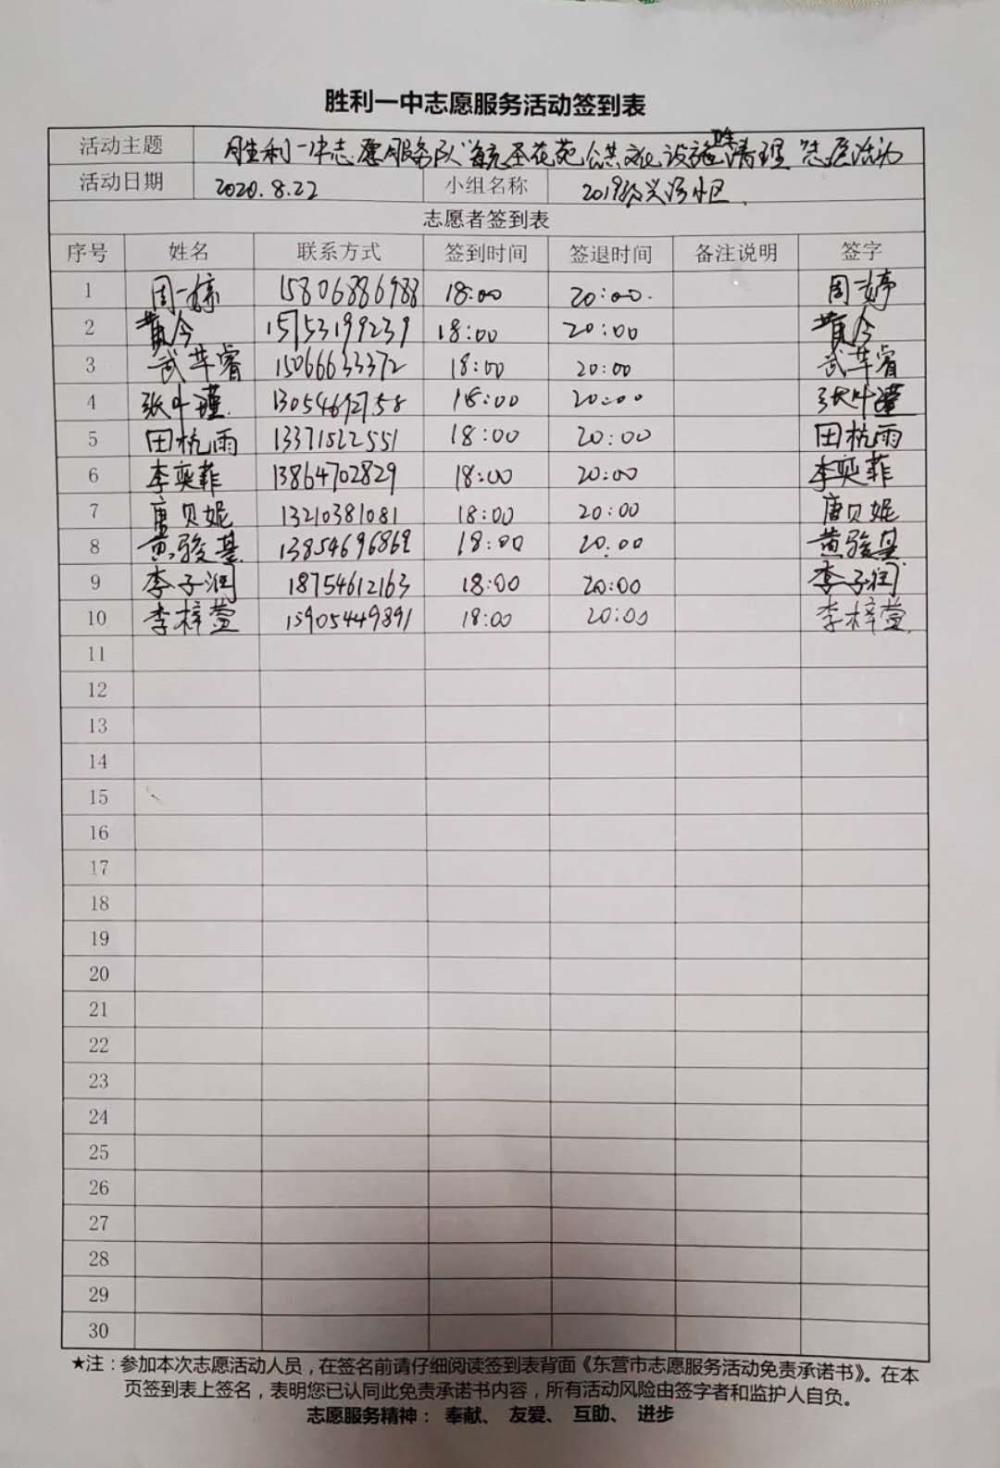 胜利一中志愿服务活动签到表
活动主题 胜利一中志愿服务队"海东圣花苑公共文化设施卫生清理"志愿活动
活动日期 2020.8.22 小组名称 2019级兴河小区
志愿者签到表
序号 姓名 联系方式 签到时间 签退时间 备注说明 签字
1 周一婷 15806886988 18:00 20:00. 周一婷
2 黄今 15753199239 18:00 20:00 黄今
3 武芊睿 15066633372 18:00 20:00 武芊睿
4 张叶瑾 13054692758 18:00 20:00 张叶瑾
5 田杭雨 13371522551 18:00 20:00 田杭雨
6 李奕菲 13864702829 18:00 20:00 李奕菲
7 唐贝妮 13210381081 18:00 20:00 唐贝妮
8 黄骏基 13854696862 18:00 20:00 黄骏基
9 李子润 18754612163 18:00 20:00 李子润
10 李梓萱 15905449891 18:00 20:00 李梓萱
11
12
13
14
15
16
17
18
19
20
21
22
23
24
25
26
27
28
29
30
★注：参加本次志愿活动人员，在签名前请仔细阅读签到表背面《东营市志愿服务活动免责承诺书》。在本
页签到表上签名，表明您已认同此免责承诺书内容，所有活动风险由签字者和监护人自负。
志愿服务精神： 奉献、 友爱、 互助、 进步